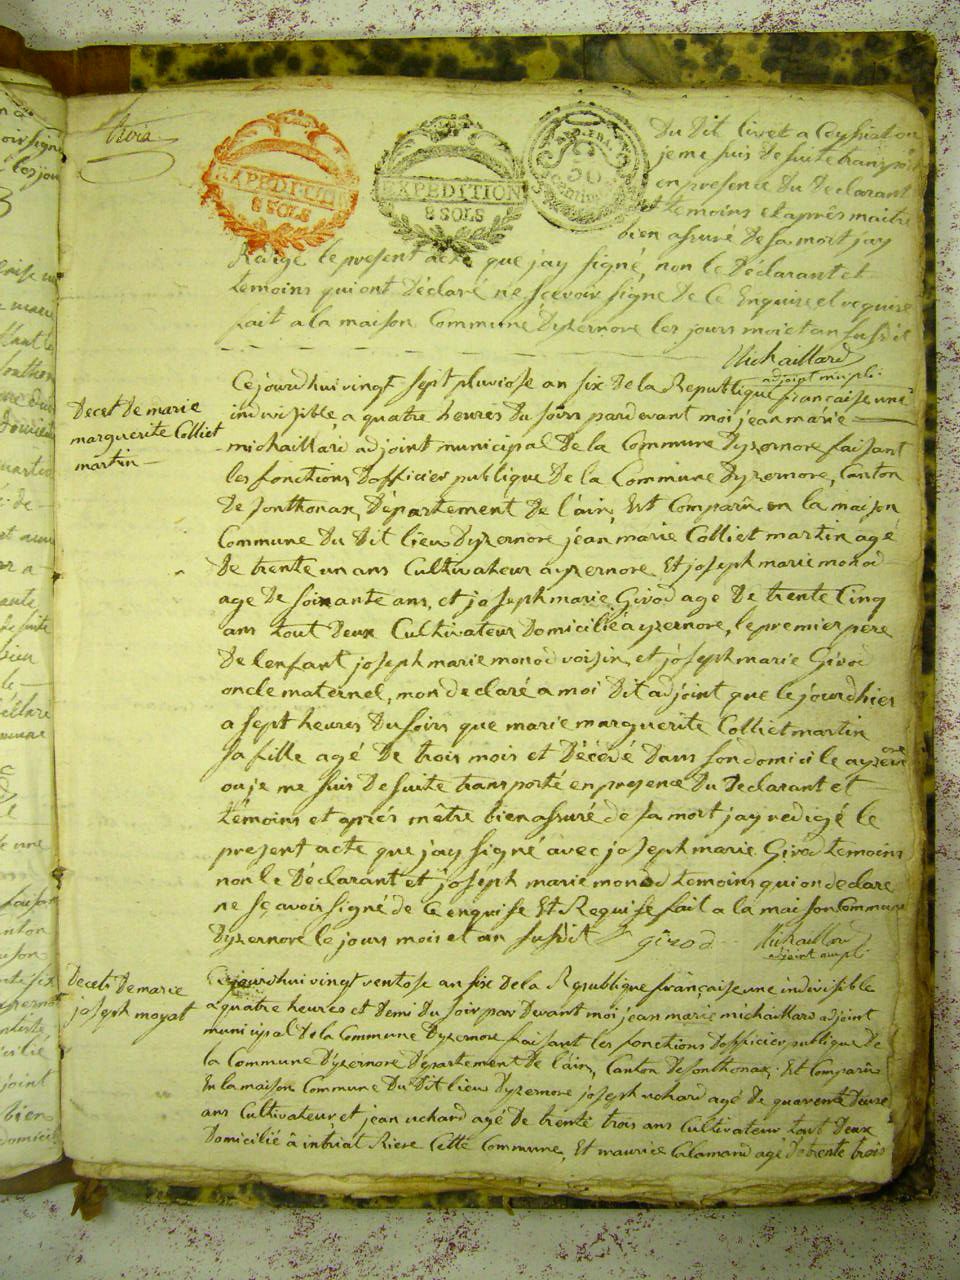 EXPEDITION
8 SOLS
EXPEDITION
8 SOLS
50
Centimes
Du Dit lieu a Ceyssiat ou
je me suis de suite transpo
en presence Du Declarant
et temoins et après maitre
bien assuré de sa mort jay
Redigé le present acte que jay signé, non le Déclarant et
temoins qui ont Déclaré ne scavoir signé De Ce Enquis et requise
fait a la maison Commune Dyzernore les jours mois et an susdit
Michaillard
adjoint mupli
Decet De marie
marguerite Colliet
martin
Cejourdhui vingt sept pluviose an six De la Republique francaise une
indivisible, a quatre heures Du soirs pardevant moi jean marie
michaillard adjoint municipal De la Commune Dyzernore faisant
les fonctions Dofficier publique De la Commune Dyzernore, Canton
De Sonthonax, Département De lain, Est Comparû en la maison
Commune Du Dit lieu Dyzernore jean marie Colliet martin agé
De trente un ans Cultivateur a yzernore Et joseph marie monod
age De soixante ans, et joseph marie Girod age De trente Cinq
ans tout Deux Cultivateur Domicilié a yzernore, le premier pere
De lenfant joseph marie monod voisin, et joseph marie Girod
oncle maternel, mon declaré a moi Dit adjoint que le jourdhier
a sept heures Du soirs que marie marguerite Colliet martin
sa fille agé De trois mois et Décédé Dans son domicile a yzernore
ou je me suis De suite transporté en presence Du Declarant et
témoins et apriés mêtre bien assuré de sa mort jay redigé le
present acte que jay signé avec joseph marie Girod temoins
non le Déclarant et joseph marie monod temoins qui on declare
ne sçavoir signé de Ce enquise Et Requise fait a la maison Commune
Dyzernore le jours mois et an susdit J girod Michaillard
adjoint mupli
Decets De marie
joseph moyat
Cejourdhui vingt ventose an six De la Republique française une indivisible
a quatre heures et Demi Du soir par Devant moi jean marie michaillard adjoint
municipal De la Commune Dyzernore faisant les fonctions Dofficier publique De
la Commune Dyzernore Departement De lain, Canton De Sonthonax, Est Comparû
En la maison Commune Du Dit lieu Dyzernore joseph uchard agé De quarente Deux
ans Cultivateur, et jean uchard agé De trente trois ans Cultivateur tout Deux
Domicilié â intriat Riere Cette Commune, Et maurice Calamard agé De trente trois